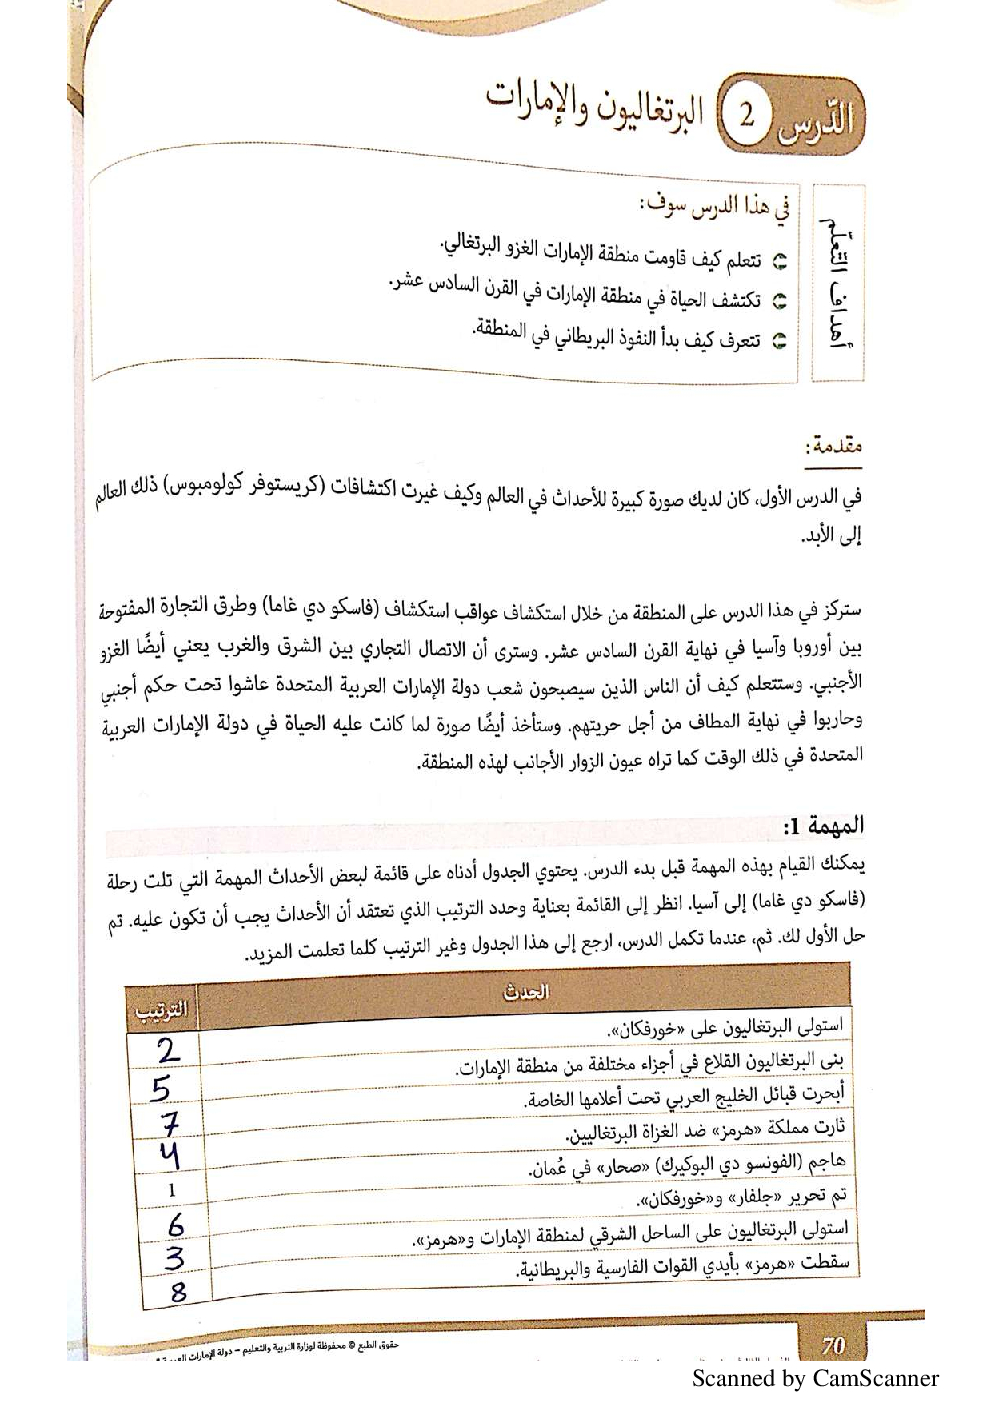 الدّرس 2 البرتغاليون والإمارات
أهداف التّعلّم
في هذا الدرس سوف:
تتعلم كيف قاومت منطقة الإمارات الغزو البرتغالي.
تكتشف الحياة في منطقة الإمارات في القرن السادس عشر.
تتعرف كيف بدأ النفوذ البريطاني في المنطقة.
مقدمة:
في الدرس الأول، كان لديك صورة كبيرة للأحداث في العالم وكيف غيرت اكتشافات (كريستوفر كولومبوس) ذلك العالم
إلى الأبد.
ستركز في هذا الدرس على المنطقة من خلال استكشاف عواقب استكشاف (فاسكو دي غاما) وطرق التجارة المفتوحة
بين أوروبا وآسيا في نهاية القرن السادس عشر. وسترى أن الاتصال التجاري بين الشرق والغرب يعني أيضًا الغزو
الأجنبي. وستتعلم كيف أن الناس الذين سيصبحون شعب دولة الإمارات العربية المتحدة عاشوا تحت حكم أجنبي
وحاربوا في نهاية المطاف من أجل حريتهم. وستأخذ أيضًا صورة لما كانت عليه الحياة في دولة الإمارات العربية
المتحدة في ذلك الوقت كما تراه عيون الزوار الأجانب لهذه المنطقة.
المهمة 1:
يمكنك القيام بهذه المهمة قبل بدء الدرس. يحتوي الجدول أدناه على قائمة لبعض الأحداث المهمة التي تلت رحلة
(فاسكو دي غاما) إلى آسيا. انظر إلى القائمة بعناية وحدد الترتيب الذي تعتقد أن الأحداث يجب أن تكون عليه. تم
حل الأول لك. ثم، عندما تكمل الدرس، ارجع إلى هذا الجدول وغير الترتيب كلما تعلمت المزيد.
الحدث الترتيب
استولى البرتغاليون على «خورفكان». 2
بنى البرتغاليون القلاع في أجزاء مختلفة من منطقة الإمارات. 5
أبحرت قبائل الخليج العربي تحت أعلامها الخاصة. 7
ثارت مملكة «هرمز» ضد الغزاة البرتغاليين. 4
هاجم (الفونسو دي البوكيرك) «صحار» في عُمان. 1
تم تحرير «جلفار» و«خورفكان». 6
استولى البرتغاليون على الساحل الشرقي لمنطقة الإمارات و«هرمز». 3
سقطت «هرمز» بأيدي القوات الفارسية والبريطانية. 8
70
حقوق الطبع © محفوظة لوزارة التربية والتعليم – دولة الإمارات
Scanned by CamScanner